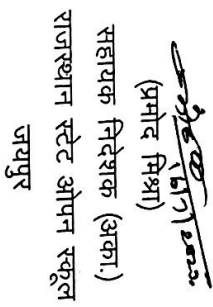 (प्रमोद मिश्रा)
सहायक निदेशक (अका.)
राजस्थान स्टेट ओपन स्कूल
जयपुर